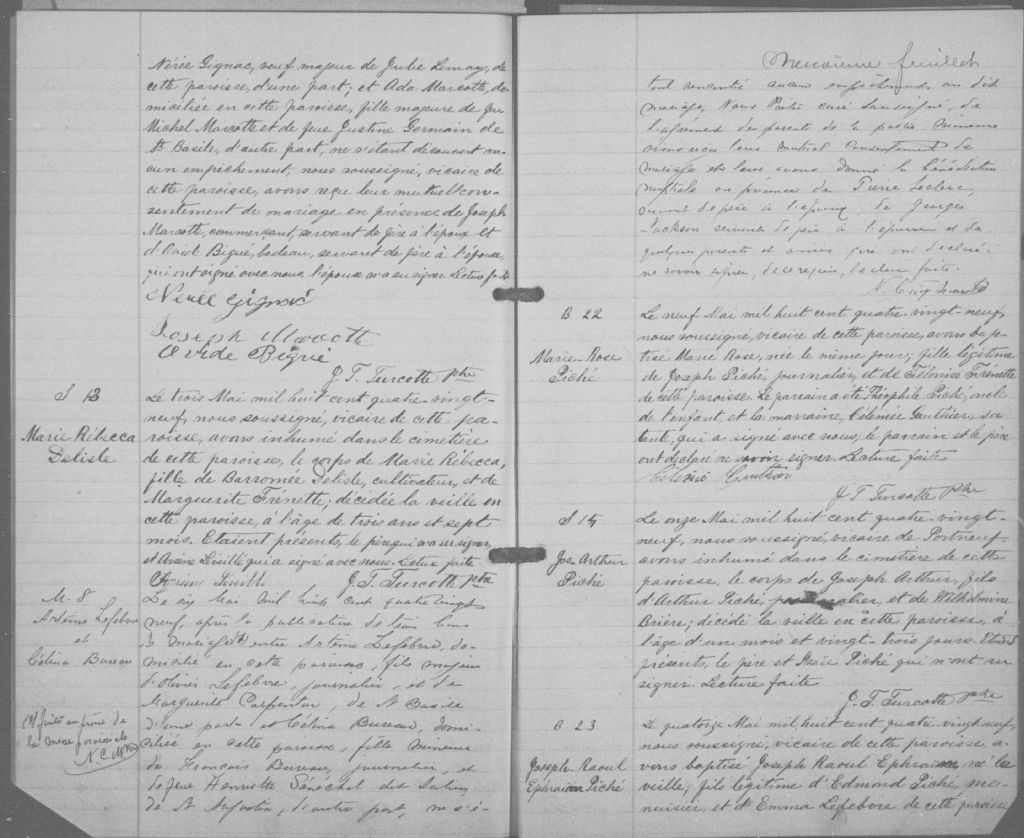 Nérée Gignac, veuf majeur de Julie Lemay, de
cette paroisse, d'une part, et Ada Marcotte, do-
miciliée en cette paroisse, fille majeure de feu
Michel Marcotte et de feue Justine Germain de
St Basile, d'autre part, ne s'étant découvert au-
cun empêchement, nous soussigné, vicaire de
cette paroisse, avons reçu leur mutuel con-
sentement de mariage en présence de Joseph
Marcotte, commerçant, servant de père à l'époux et
d'Ovide Bigué, bedeau, servant de père à l'épouse,
qui ont signé avec nous, l'épouse n'a su signer. Lecture faite
Nérée Gignac
Joseph Marcotte
Ovide Bigué
J. T. Turcotte ptre
S 13
Marie Rébecca
Delisle
Le trois Mai mil huit cent quatre-vingt-
neuf, nous soussigné, vicaire de cette pa-
roisse, avons inhumé dans le cimetière
de cette paroisse, le corps de Marie Rébecca,
fille de Barromée Delisle, cultivateur, et de
Marguerite Frénette, décédée la veille en
cette paroisse, à l'âge de trois ans et sept
mois. Etaient présents, le père qui n'a su signer
et Arsène Léveillé qui a signé avec nous. Lecture faite
J. T. Turcotte ptre
M. 8
Artème Lefebvre
et
Célina Bureau
Le six Mai mil huit cent quatre vingt
neuf, après la publication de trois bans
de mariage entre Artème Lefebvre, do-
micilié en cette paroisse, fils majeur
d'Olivier Lefebvre, journalier, et de
Marguerite Carpentier, de St Basile
d'une part et Célina Bureau, domi-
ciliée en cette paroisse, fille mineure
de François Bureau, journalier, et
de feue Henriette Sénéchal
de St Augustin, d'autre part, ne s'é-
faite au prône de
la messe paroissiale
feuillet
tant rencontré aucun empêchement au dit
mariage, Nous Prêtre curé soussigné, de
l'agrément des parents de la partie mineure
avons reçu leur mutuel consentement de
mariage et leur avons donné la bénédiction
nuptiale en présence de Pierre Leclerc,
servant de père à l'époux et de Georges
Jackson servant de père à l'épouse et de
quelques parents et amis qui ont déclaré
ne savoir signer, de ce requis, lecture faite.
B 22
Marie-Rose
Piché
Le neuf Mai mil huit cent quatre-vingt-neuf,
nous soussigné, vicaire de cette paroisse, avons bap-
tisé Marie Rose, née le même jour, fille légitime
de Joseph Piché, journalier, et de Frénette
de cette paroisse. Le parrain a été Théophile Piché, oncle
de l'enfant, et la marraine, Gauthier, sa
tante, qui a signé avec nous; le parrain et le père
ont déclaré ne savoir signer. Lecture faite
J. T. Turcotte Ptre
S 14
Jos Arthur
Piché
Le onze Mai mil huit cent quatre-vingt-
neuf, nous soussigné, vicaire de Portneuf,
avons inhumé dans le cimetière de cette
paroisse, le corps de Joseph Arthur, fils
d'Arthur Piché, journalier, et de Wilhelmine
Brière; décédé la veille en cette paroisse, à
l'âge d'un mois et vingt-trois jours. Etaient
présents, le père et Piché qui n'ont su
signer. Lecture faite
J. T. Turcotte Ptre
B 23
Joseph-Raoul
Ephraïm Piché
Le quatorze Mai mil huit cent quatre-vingt neuf,
nous soussigné, vicaire de cette paroisse, a-
vons baptisé Joseph Raoul Ephraïm né la
veille, fils légitime d'Edmond Piché, me-
nuisier, et d'Emma Lefebvre de cette paroisse